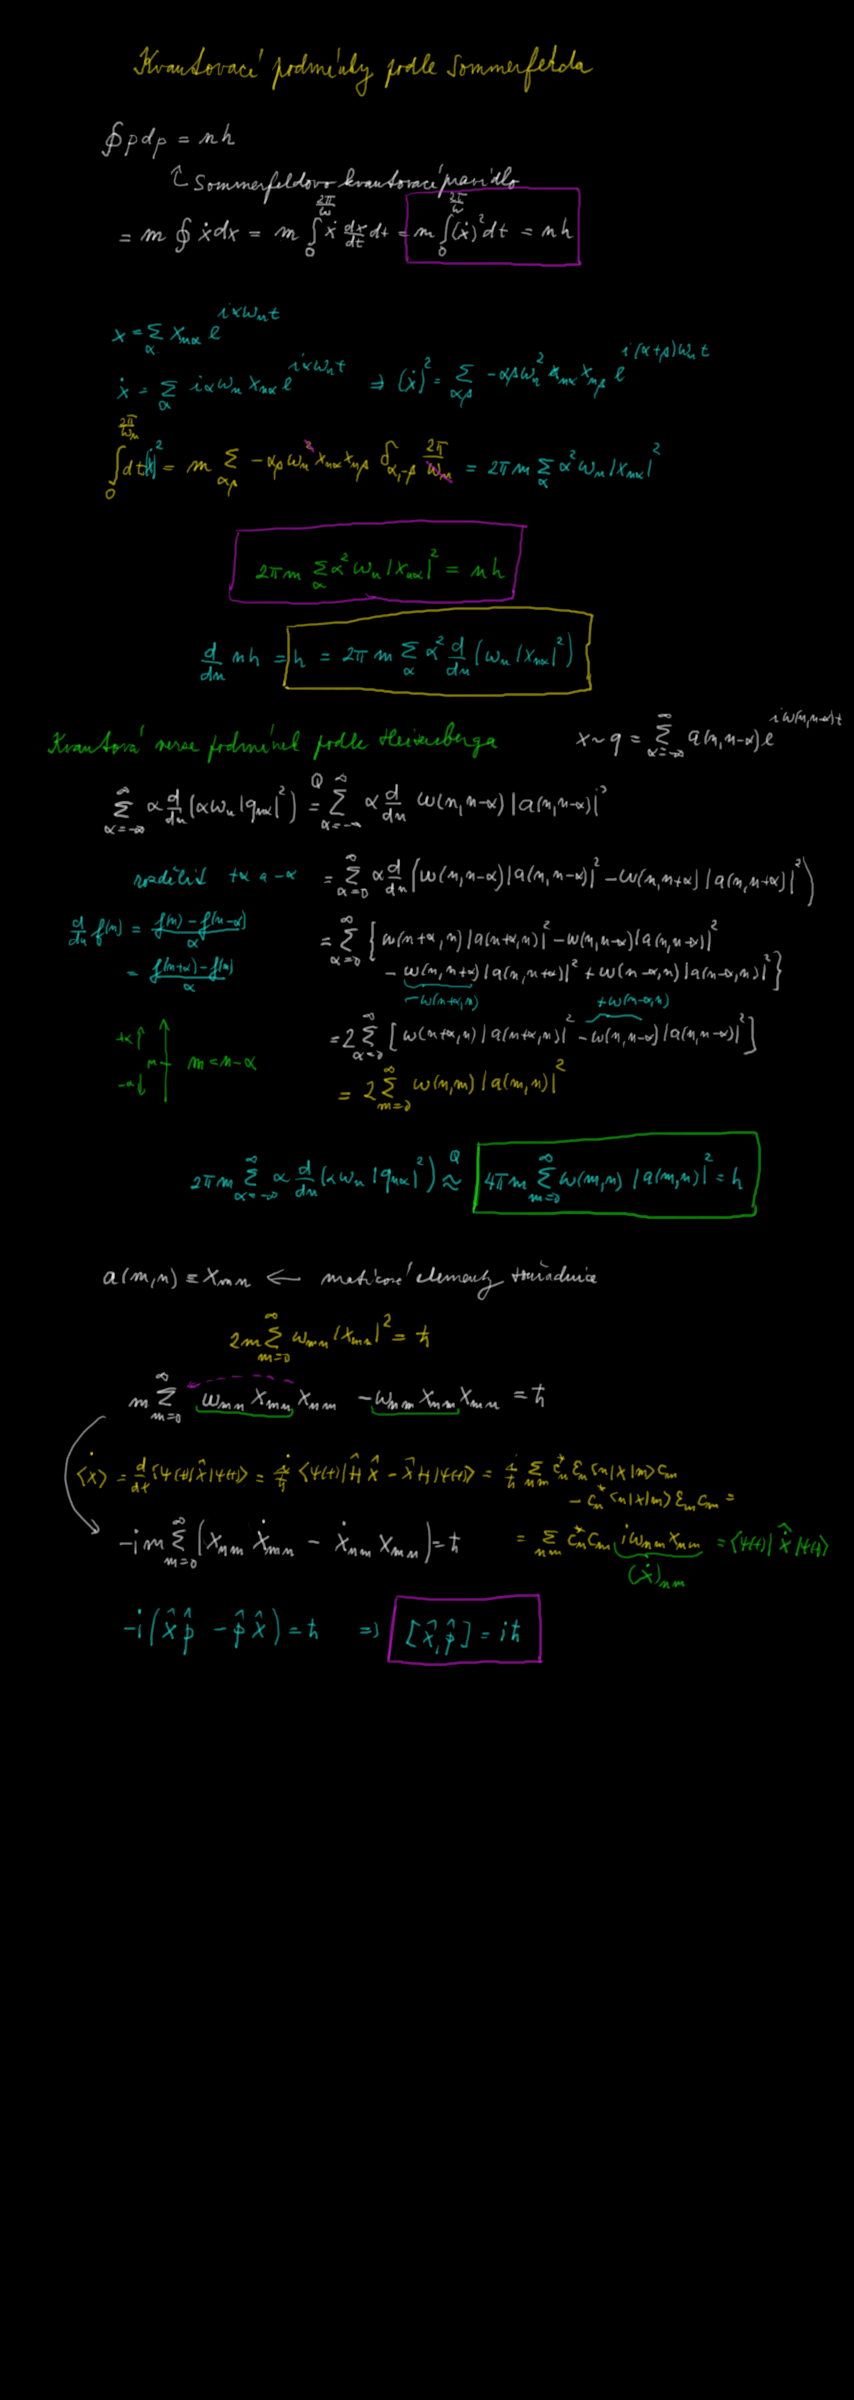 Kvantovací podmínky podle Sommerfelda
∮ p dp = nh
↑ Sommerfeldovo kvantovací pravidlo
= m ∮ ẋ dx = m ∫₀^{2π/ω} ẋ dx/dt dt = m ∫₀^{2π/ω} (ẋ)² dt = nh
x = Σ_α x_{nα} e^{iαω_n t}
ẋ = Σ_α iαω_n x_{nα} e^{iαω_n t} ⇒ (ẋ)² = Σ_{αβ} -αβω_n² x_{nα} x_{nβ} e^{i(α+β)ω_n t}
∫₀^{2π/ω_n} dt (ẋ)² = m Σ_{αβ} -αβω_n² x_{nα} x_{nβ} δ_{α,-β} 2π/ω_n = 2πm Σ_α α² ω_n |x_{nα}|²
2πm Σ_α α² ω_n |x_{nα}|² = nh
d/dn nh = h = 2πm Σ_α α² d/dn (ω_n |x_{nα}|²)
Kvantová verze podmínek podle Heisenberga x ~ q = Σ_{α=-∞}^{∞} a(n,n-α) e^{iω(n,n-α)t}
Σ_{α=-∞}^{∞} α d/dn (αω_n |q_{nα}|²) =^Q Σ_{α=-∞}^{∞} α d/dn ω(n,n-α) |a(n,n-α)|²
rozdělit +α a -α = Σ_{α=0}^{∞} α d/dn (ω(n,n-α) |a(n,n-α)|² - ω(n,n+α) |a(n,n+α)|²)
d/dn f(n) = (f(n) - f(n-α))/α = Σ_{α=0}^{∞} { ω(n+α,n) |a(n+α,n)|² - ω(n,n-α) |a(n,n-α)|²
= (f(n+α) - f(n))/α - ω(n,n+α) |a(n,n+α)|² + ω(n-α,n) |a(n-α,n)|² }
-ω(n+α,n) +ω(n-α,n)
+α↑ = 2 Σ_{α=0}^{∞} [ ω(n+α,n) |a(n+α,n)|² - ω(n,n-α) |a(n,n-α)|² ]
n m = n-α
-α↓ = 2 Σ_{m=0}^{∞} ω(n,m) |a(m,n)|²
2πm Σ_{α=-∞}^{∞} α d/dn (αω_n |q_{nα}|²) ≈^Q 4πm Σ_{m=0}^{∞} ω(m,n) |a(m,n)|² = h
a(m,n) ≡ x_{mn} ← maticové elementy souřadnice
2m Σ_{m=0}^{∞} ω_{mn} |x_{mn}|² = ħ
m Σ_{m=0}^{∞} ω_{mn} x_{mn} x_{nm} - ω_{nm} x_{nm} x_{mn} = ħ
⟨ẋ⟩ = d/dt ⟨ψ(t)|x̂|ψ(t)⟩ = i/ħ ⟨ψ(t)|Ĥ x̂ - x̂ Ĥ|ψ(t)⟩ = i/ħ Σ_{nm} c_n* ε_n ⟨n|x|m⟩ c_m
- c_n* ⟨n|x|m⟩ ε_m c_m =
-im Σ_{m=0}^{∞} (x_{nm} ẋ_{mn} - ẋ_{nm} x_{mn}) = ħ = Σ_{nm} c_n* c_m iω_{nm} x_{nm} = ⟨ψ(t)|ẋ̂|ψ(t)⟩
(ẋ)_{nm}
-i (x̂ p̂ - p̂ x̂) = ħ ⇒ [x̂, p̂] = iħ